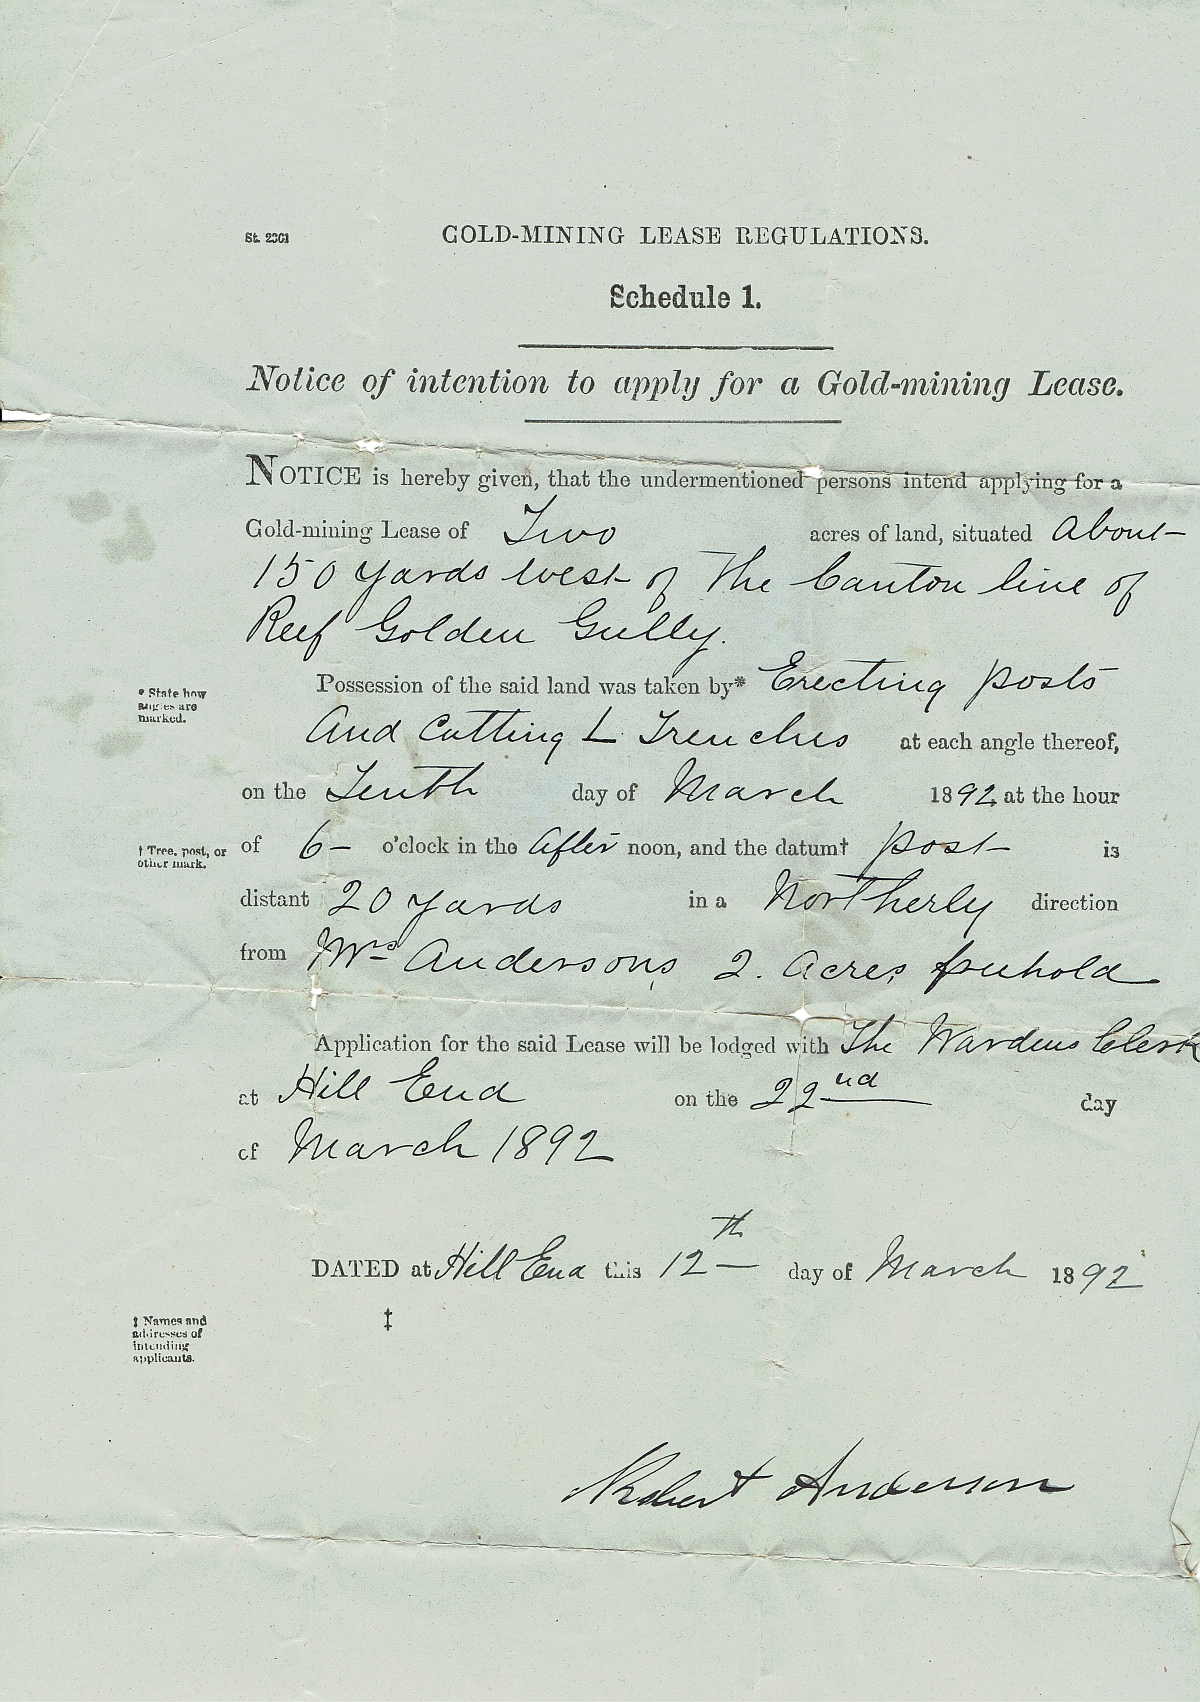 St. 2361
GOLD-MINING LEASE REGULATIONS.
Schedule 1.
Notice of intention to apply for a Gold-mining Lease.
NOTICE is hereby given, that the undermentioned persons intend applying for a
Gold-mining Lease of Two acres of land, situated About
150 Yards West of The Canton line of
Reef Golden Gully.
* State how
angles are
marked.
Possession of the said land was taken by* Erecting posts
And Cutting L Trenches at each angle thereof,
on the Tenth day of March 1892 at the hour
† Tree, post, or
other mark.
of 6 – o'clock in the After noon, and the datum† post is
distant 20 yards in a Northerly direction
from Mrs Andersons 2. Acres freehold
Application for the said Lease will be lodged with The Wardens Clerk
at Hill End on the 22nd day
of March 1892
DATED at Hill End this 12th day of March 1892
‡
‡ Names and
addresses of
intending
applicants.
Robert Anderson